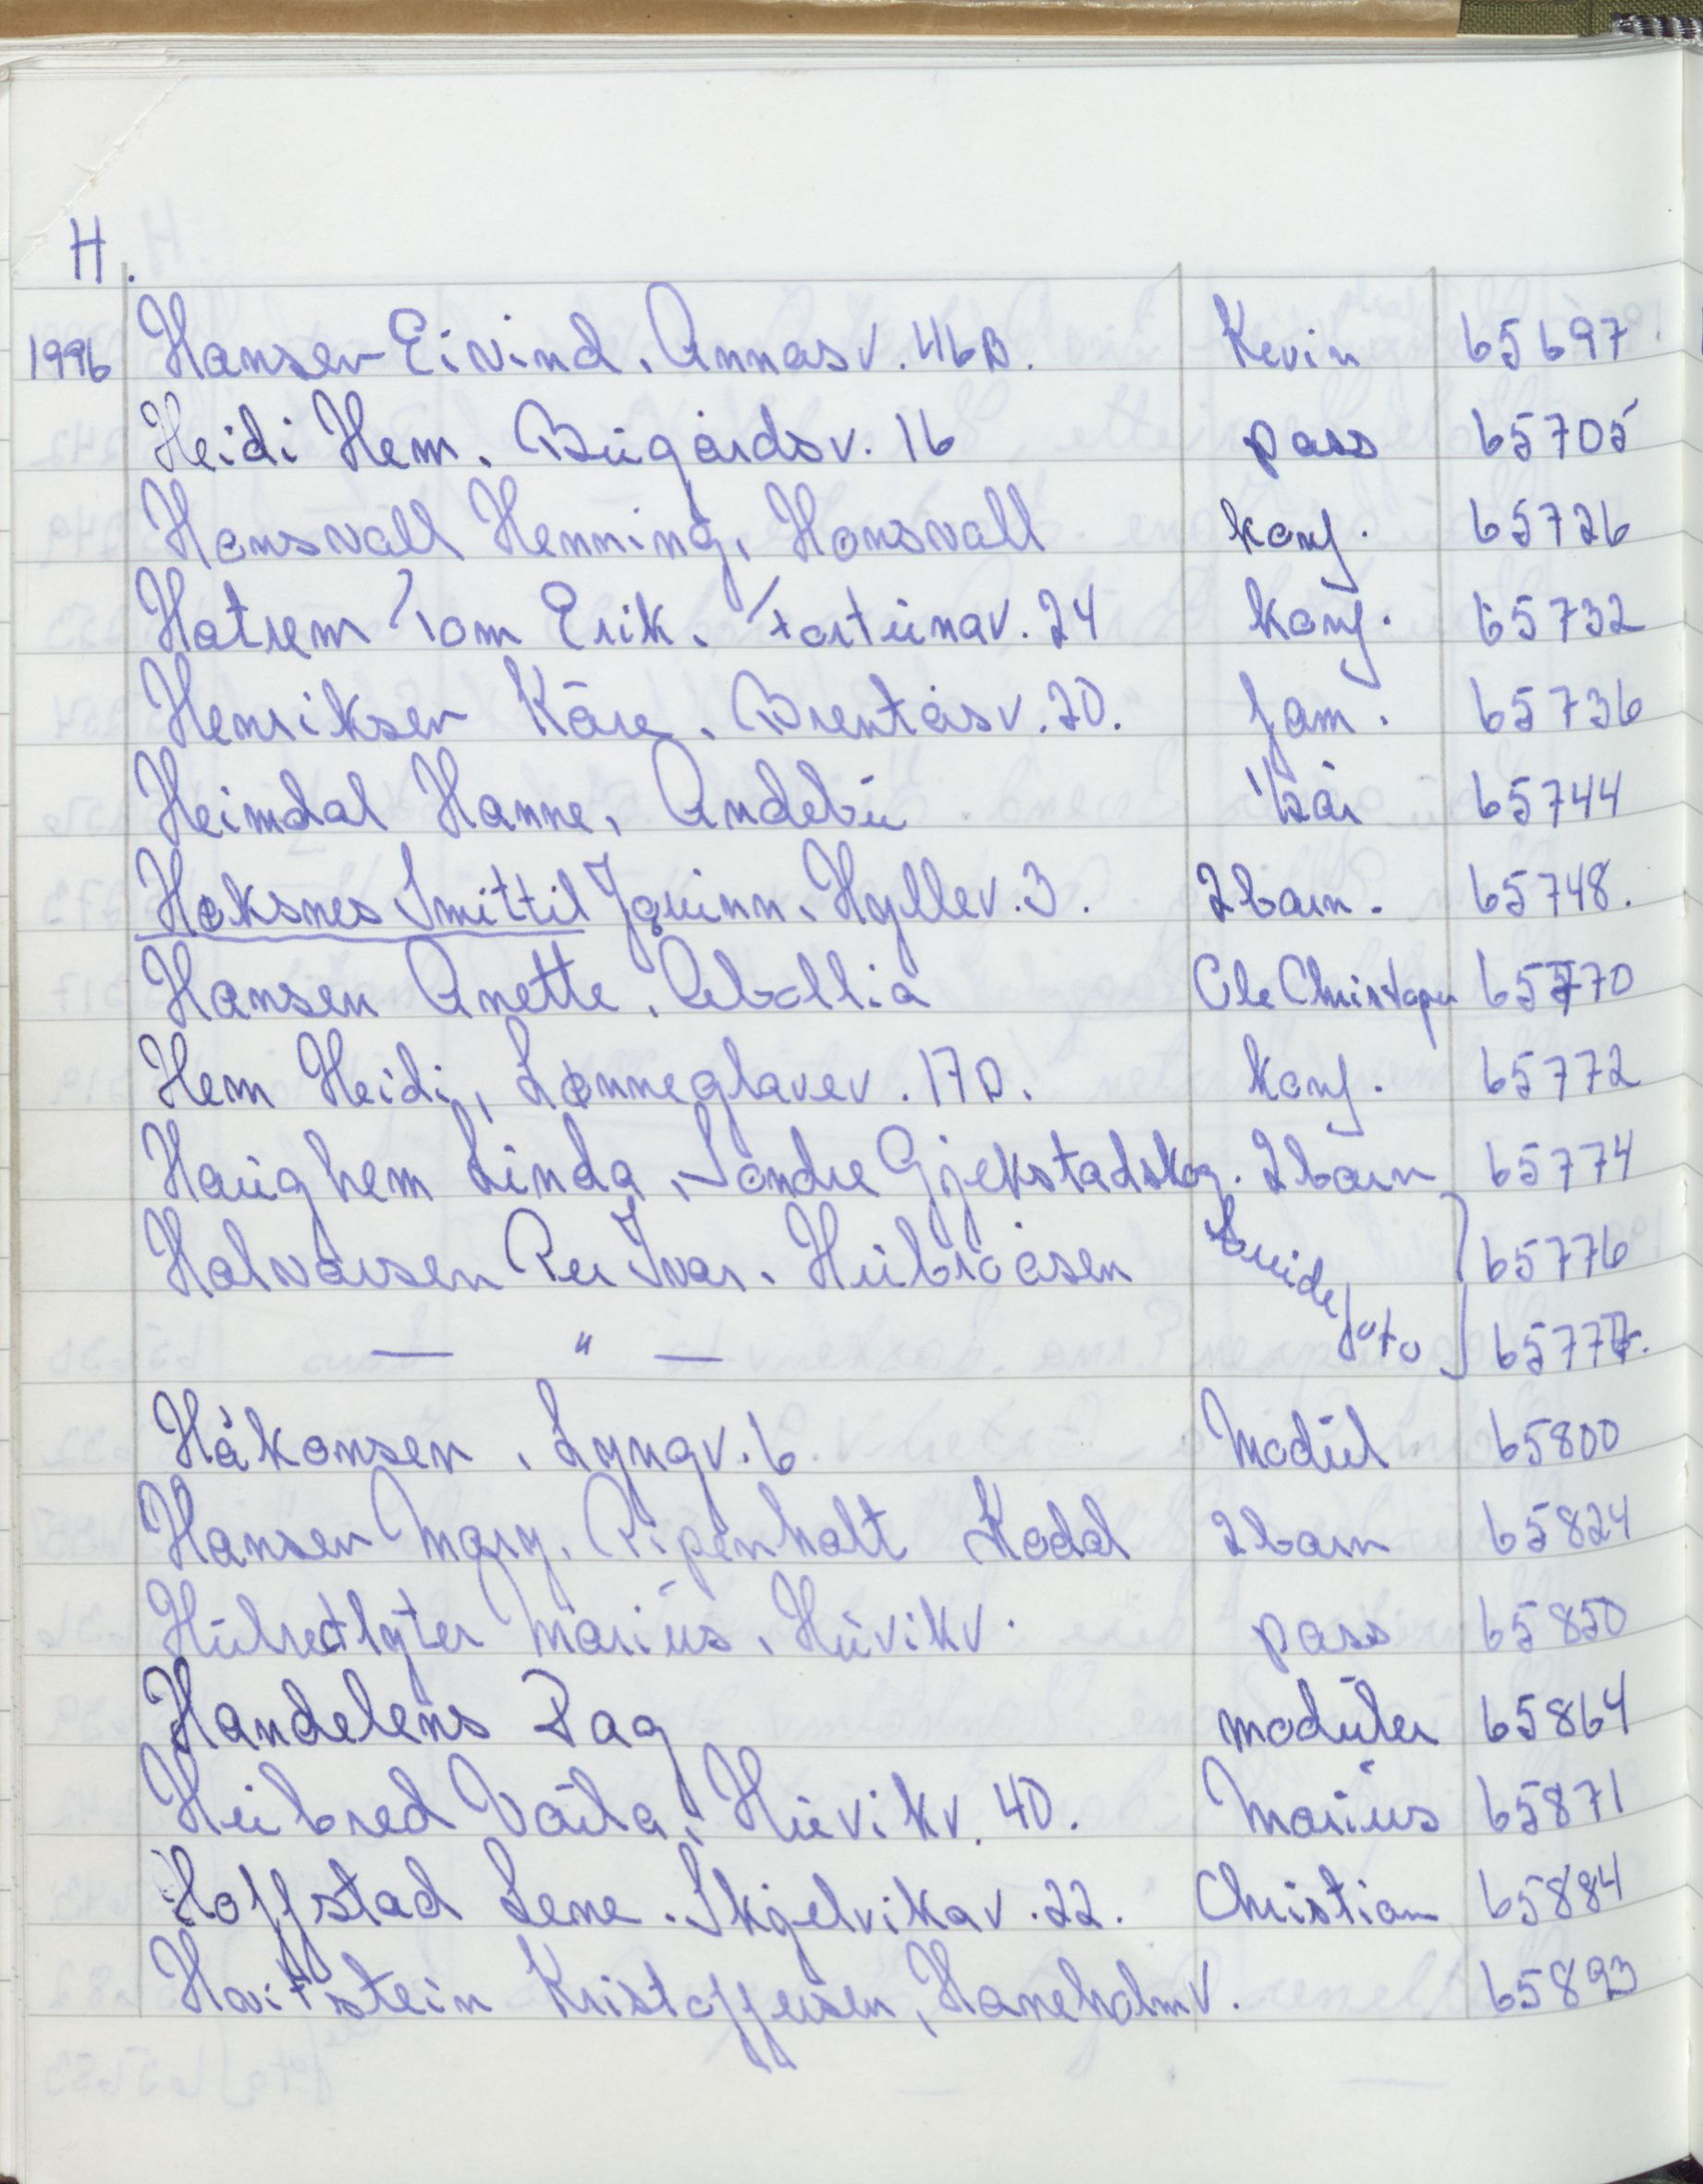 H.
1996 Hansen Eivind. Annasv. 46B. Kevin 65697
Heidi Hem. Bugårdsv. 16 pass 65705
Honsvall Henning, Honsvall konf. 65726
Hotrem Tom Erik. Fortunav. 24 konf. 65732
Henriksen Kåre. Brentåsv. 20. fam. 65736
Heimdal Hanne, Andebu 1/2 år 65744
Hoksnes Smittil Jorunn. Hyllev. 3. 2 barn. 65748.
Hansen Anette. Robollia Ole Christopher 65770
Hem Heidi, Lønneglavev. 17D. konf. 65772
Haughem Linda, Søndre Gjekstadskog. 2 barn 65774
Halvorsen Per Ivar. Hubroåsen brude 65776
— " — foto 65777.
Håkonsen. Lyngv. 6 Modul 65800
Hansen Mary. Ripenholt Kodal 2 barn 65824
Marius. Huvikv. pass 65850
Handelens Dag moduler 65864
Hubred Vårla, Huvikv. 40. Marius 65871
Hoffstad Lene. Skjelvikav. 22. Christian 65884
Havstein Kristoffersen, Haneholmv. 65893